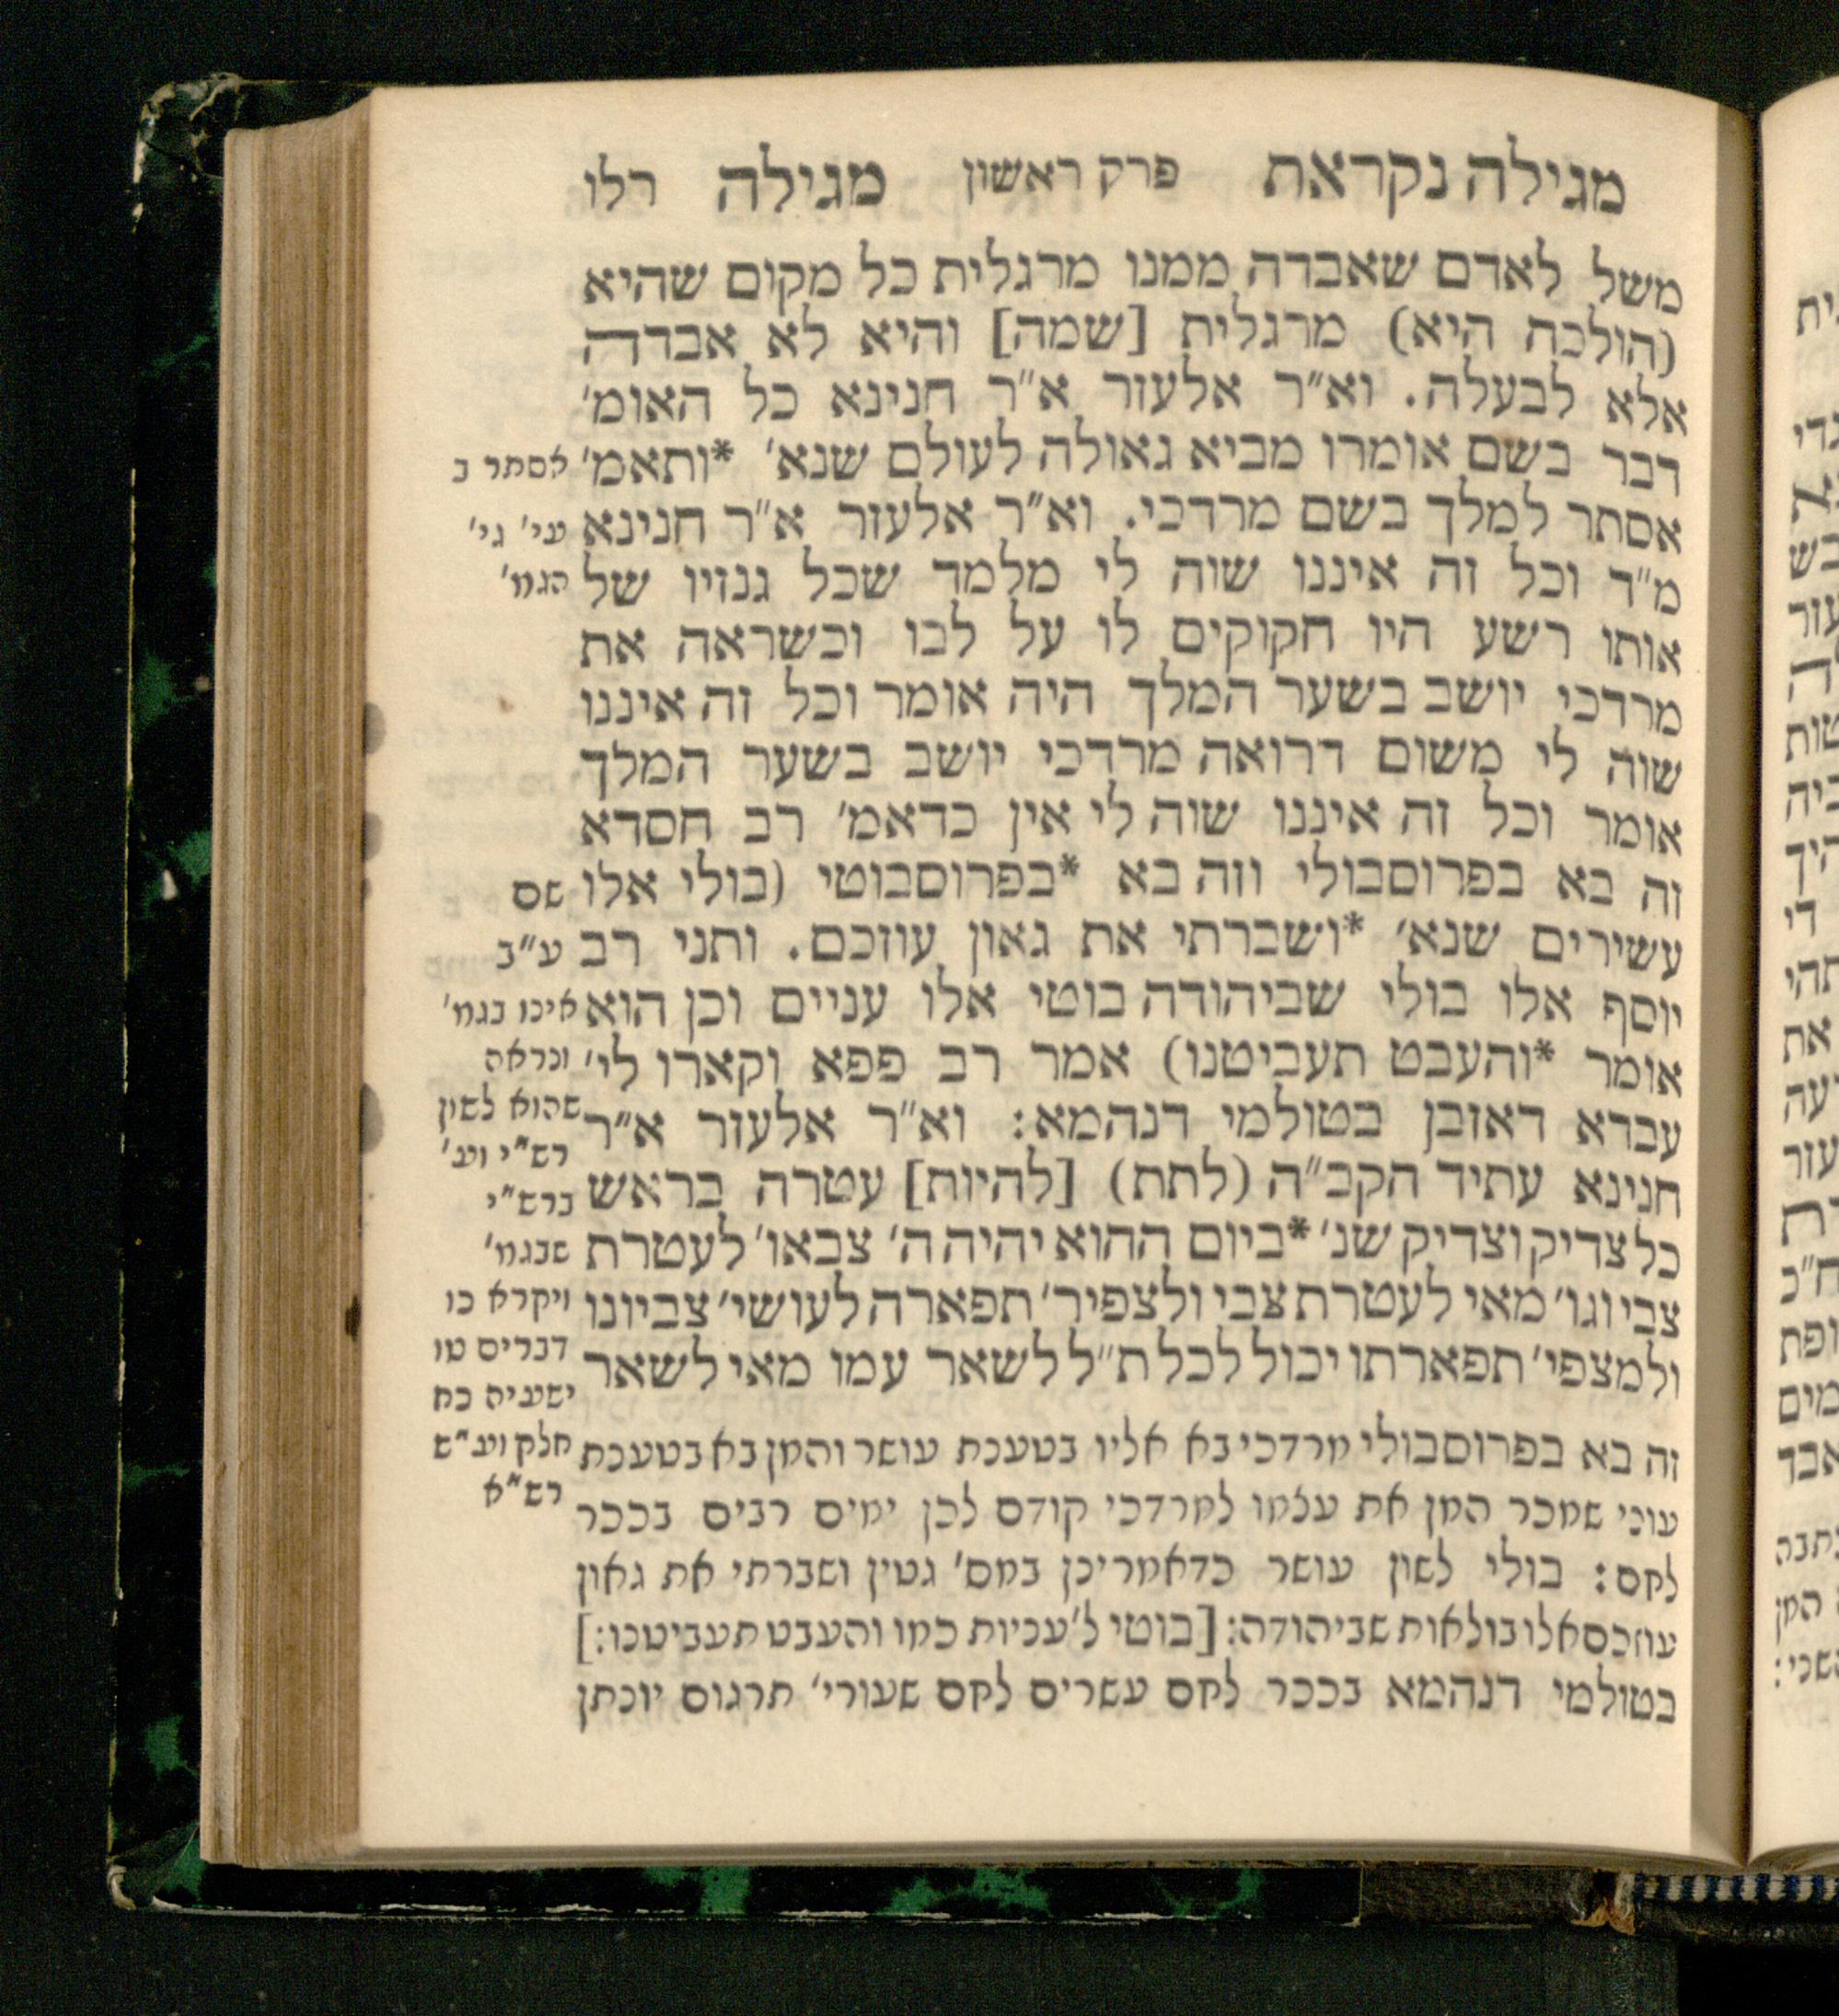 מגילה נקראת פרק ראשון מגילה רלו
משל לאדם שאבדה ממנו מרגלית כל מקום שהיא
(הולכת היא) מרגלית [שמה] והיא לא אבדה
אלא לבעלה. וא"ר אלעזר א"ר חנינא כל האומ'
דבר בשם אומרו מביא גאולה לעולם שנא' *ותאמ'
אסתר למלך בשם מרדכי. וא"ר אלעזר א"ר חנינא
מ"ד וכל זה איננו שוה לי מלמד שכל גנזיו של
אותו רשע היו חקוקים לו על לבו וכשראה את
מרדכי יושב בשער המלך היה אומר וכל זה איננו
שוה לי משום דרואה מרדכי יושב בשער המלך
אומר וכל זה איננו שוה לי אין כדאמ' רב חסדא
זה בא בפרוסבולי וזה בא *בפרוסבוטי (בולי אלו
עשירים שנא' *ושברתי את גאון עוזכם. ותני רב
יוסף אלו בולי שביהודה בוטי אלו עניים וכן הוא
אומר *והעבט תעביטנו) אמר רב פפא וקארו לי'
עבדא דאזבן בטולמי דנהמא: וא"ר אלעזר א"ר
חנינא עתיד הקב"ה (לתת) [להיות] עטרה בראש
כל צדיק וצדיק שנ' *ביום ההוא יהיה ה' צבאו' לעטרת
צבי וגו' מאי לעטרת צבי ולצפיר' תפארה לעושי' צביונו
ולמצפי' תפארתו יכול לכל ת"ל לשאר עמו מאי לשאר
אסתר ב
עי' גי'
הגמ'
שם
ע"ב
אינו בגמ'
ונראה
שהוא לשון
רש"י ועי'
ברש"י
שבגמ'
ויקרא כו
דברים טו
ישעיה כח
חלק וע"ש
רש"א
זה בא בפרוסבולי מרדכי בא אליו בטענת עושר והמן בא בטענת
עוני שמכר המן את עצמו למרדכי קודם לכן ימים רבים בככר
לחם: בולי לשון עושר כדאמרינן במס' גטין ושברתי את גאון
עוזכם אלו בולאות שביהודה: [בוטי ל' עניות כמו והעבט תעביטנו:]
בטולמי דנהמא בככר לחם עשרים לחם שעורי' תרגום יונתן